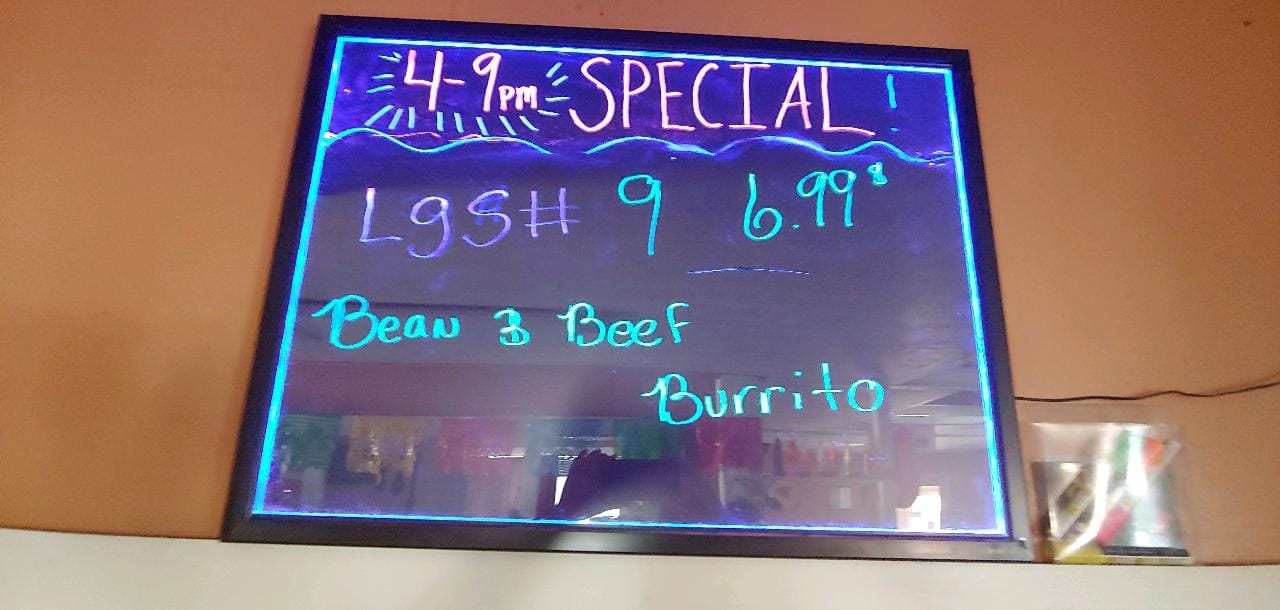 4-9pm SPECIAL!
Lg S# 9 6.99$
Bean & Beef
Burrito